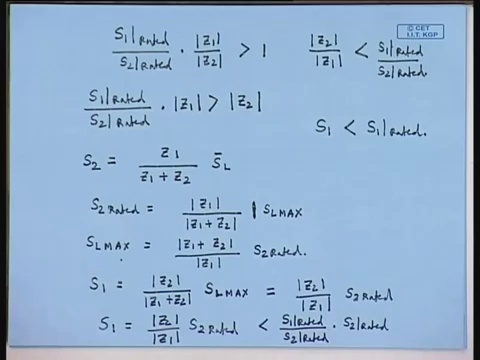 © CET
I.I.T. KGP
S1|Rated / S2|Rated · |Z1| / |Z2| > 1    |Z2| / |Z1| < S1|Rated / S2|Rated.
S1|Rated / S2|Rated · |Z1| > |Z2|
S1 < S1|Rated.
S2 = Z1 / Z1 + Z2 S̄L
S2 Rated = |Z1| / |Z1 + Z2| | SLMAX
SLMAX = |Z1 + Z2| / |Z1| S2 Rated.
S1 = |Z2| / |Z1 + Z2| SLMAX = |Z2| / |Z1| S2 Rated
S1 = |Z2| / |Z1| S2 Rated < S1|Rated / S2|Rated · S2|Rated